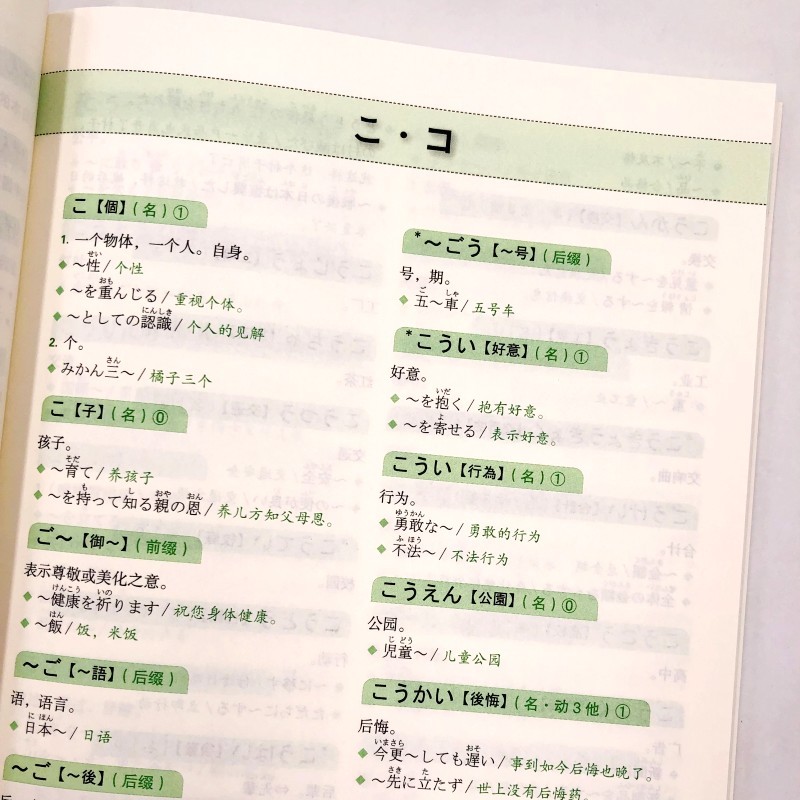 こ・コ
こ【個】(名)①
1. 一个物体，一个人。自身。
せい
◆ ～性/个性
おも
◆ ～を重んじる/重视个体。
にんしき
◆ ～としての認識/个人的见解
2. 个。
さん
◆ みかん三～/橘子三个
こ【子】(名)⓪
孩子。
そだ
◆ ～育て/养孩子
も し おや おん
◆ ～を持って知る親の恩/养儿方知父母恩。
ご～【御～】(前缀)
表示尊敬或美化之意。
けんこう いの
◆ ～健康を祈ります/祝您身体健康。
はん
◆ ～飯/饭，米饭
～ご【～語】(后缀)
语，语言。
に ほん
◆ 日本～/日语
～ご【～後】(后缀)
*～ごう【～号】(后缀)
号，期。
ご しゃ
◆ 五～車/五号车
*こうい【好意】(名)①
好意。
いだ
◆ ～を抱く/抱有好意。
よ
◆ ～を寄せる/表示好意。
こうい【行為】(名)①
行为。
ゆうかん
◆ 勇敢な～/勇敢的行为
ふ ほう
◆ 不法～/不法行为
こうえん【公園】(名)⓪
公园。
じ どう
◆ 児童～/儿童公园
こうかい【後悔】(名·动3他)①
后悔。
いまさら おそ
◆ 今更～しても遅い/事到如今后悔也晚了。
さき た
◆ ～先に立たず/世上没有后悔药。